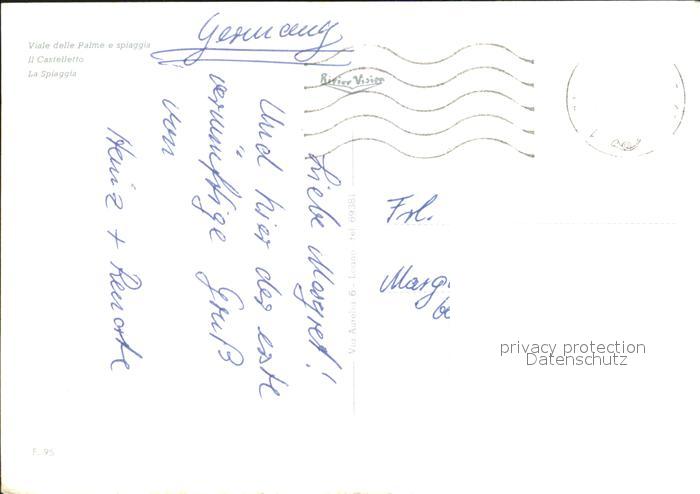 Germany
Viale delle Palme e spiaggia
Il Castelletto
La Spiaggia
Liebe Margret!
Und hier der erste
vernünftige Gruß
von
Heinz + Renate
Via Aurelia 6 - Loano - tel. 69381
Frl.
Marg
privacy protection
Datenschutz
F. 95